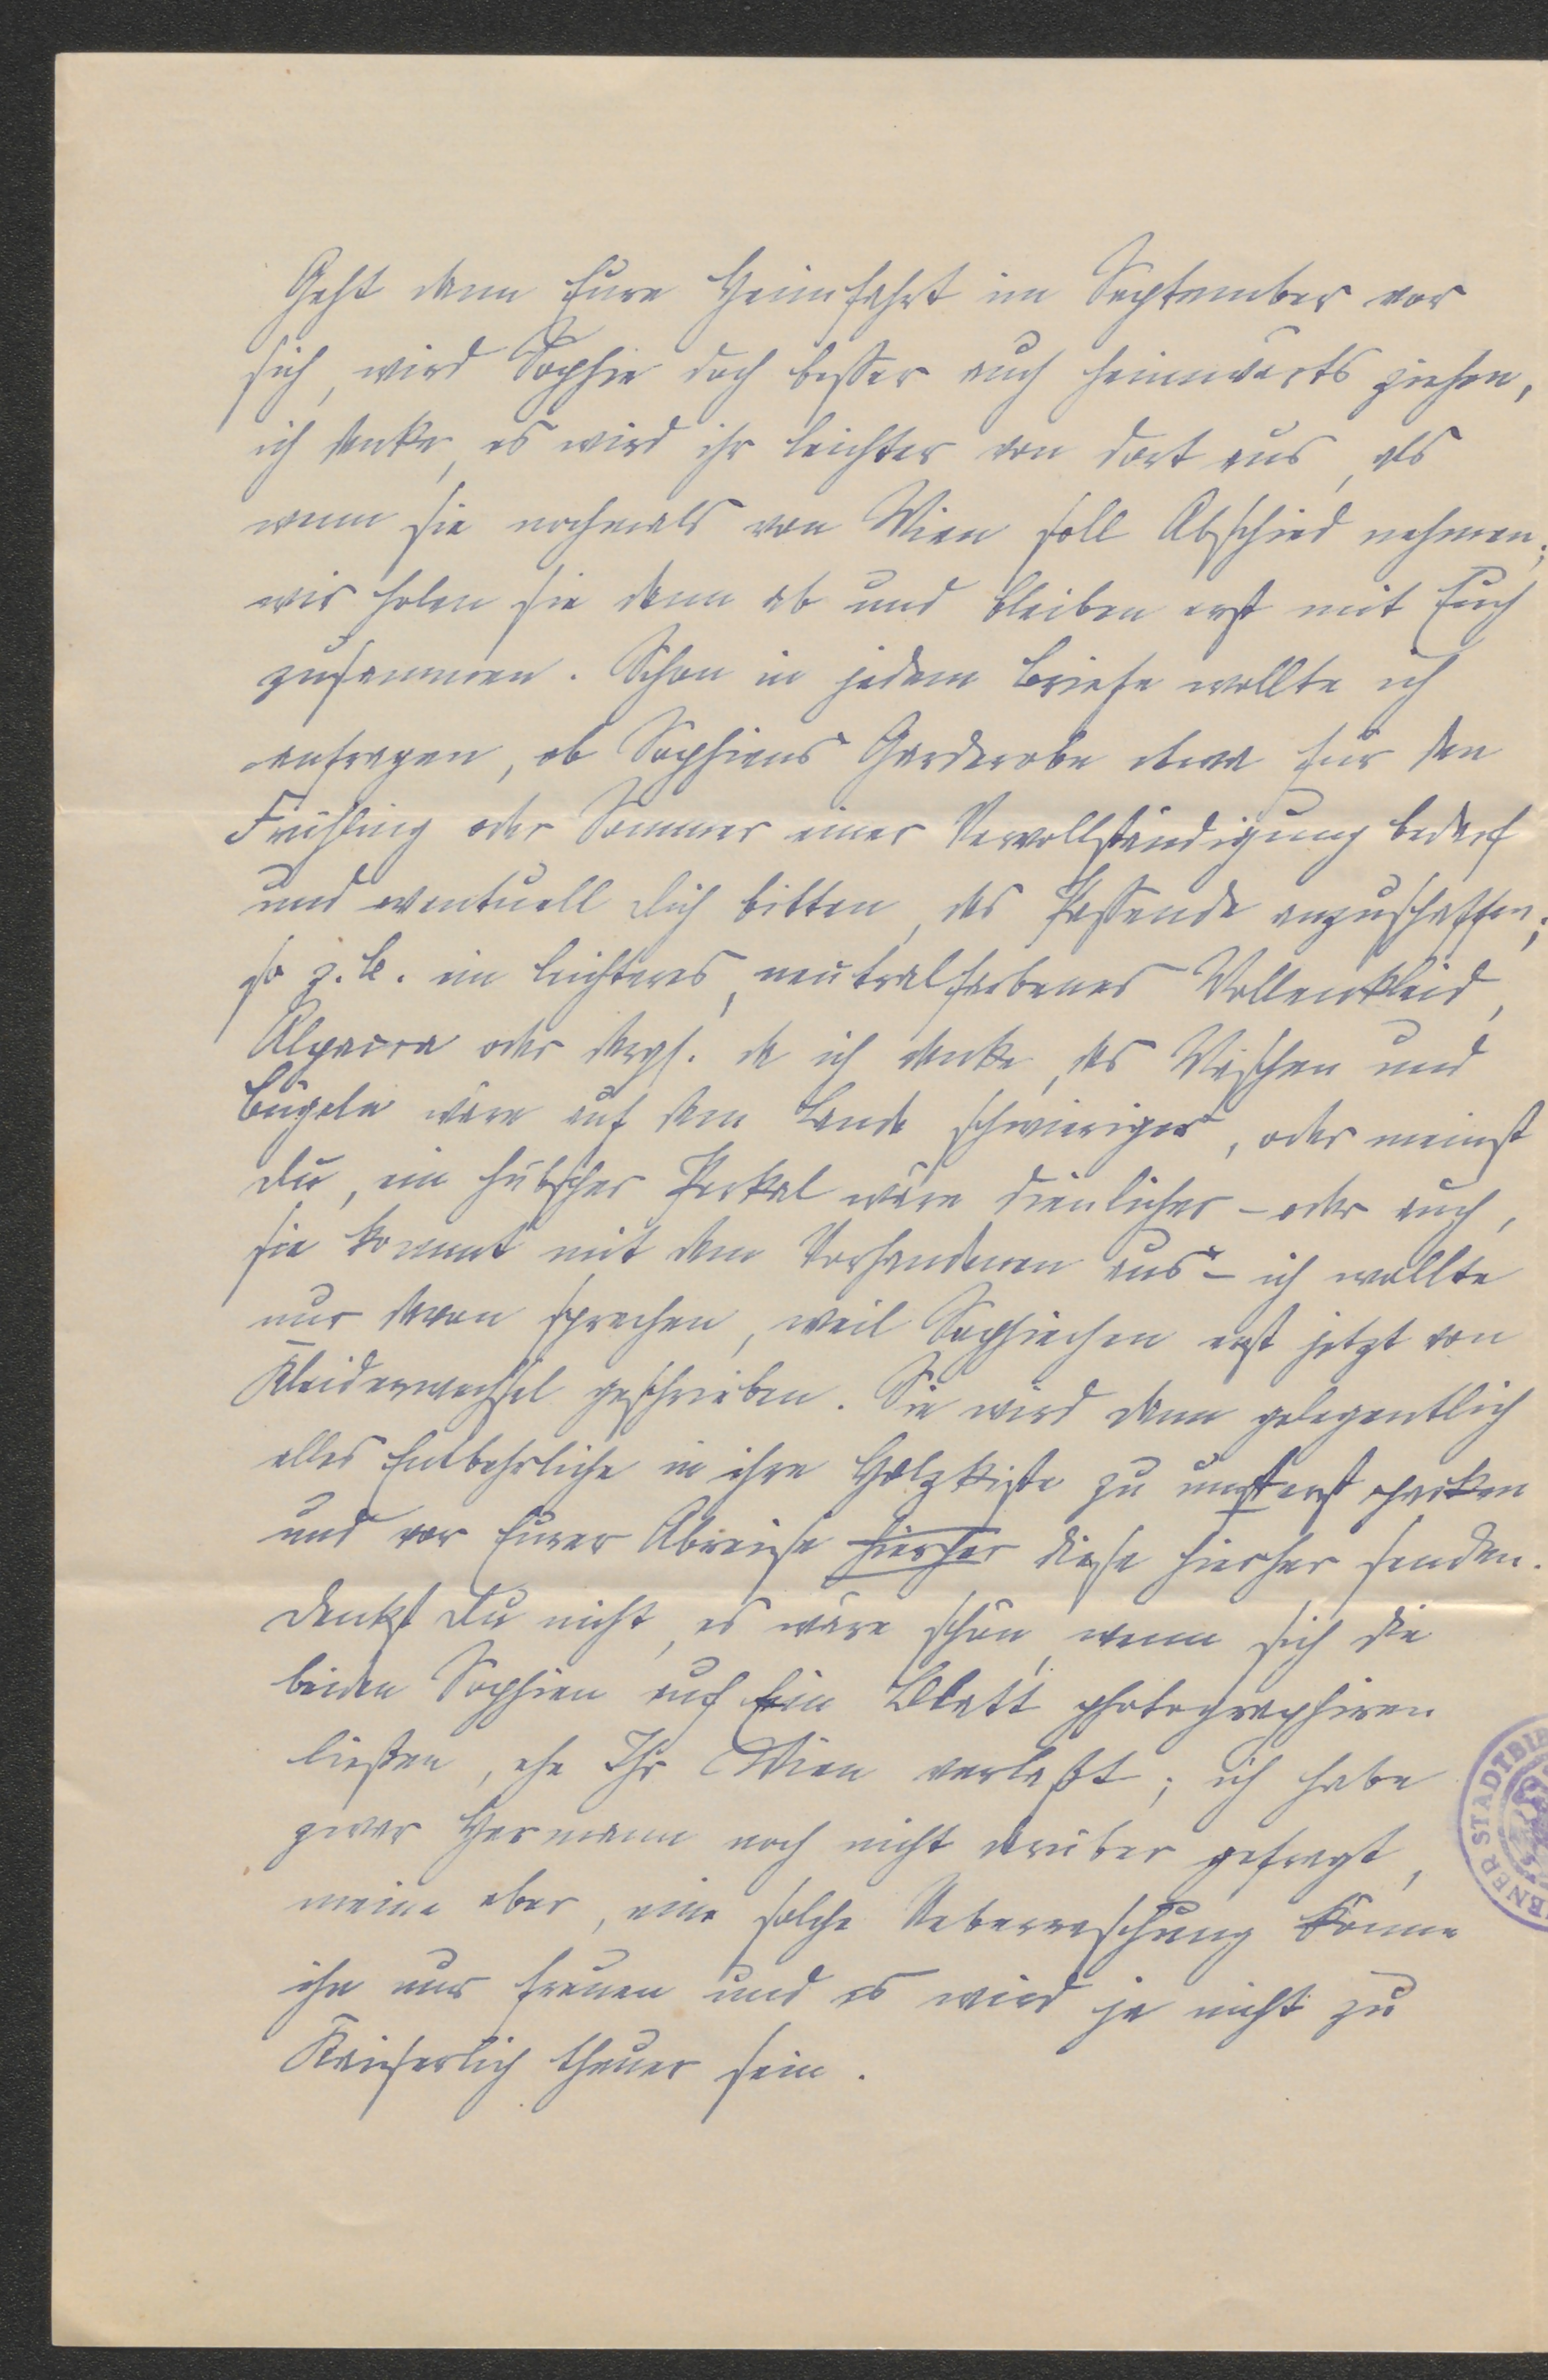 Geht dann Eure Heimfahrt im September vor
sich, wird Sophie doch besser auch heimwärts ziehen,
ich denke, es wird ihr leichter von dort aus, als
wenn sie nochmals von Wien soll Abschied nehmen;
wir holen sie dann ab und bleiben erst mit Euch
zusammen. Schon in jedem Briefe wollte ich
anfragen, ob Sophiens Garderobe etwa für den
Frühling oder Sommer einer Vervollständigung bedarf
und eventuell Dich bitten, das Passende anzuschaffen;
so z.B. ein leichteres, neutralfarbenes Wollenkleid,
Alpacca oder dergl. da ich denke, das Waschen und
Bügeln wäre auf dem Lande schwieriger, oder meinst
Du, ein hübscher Perkal wäre dienlicher – oder auch,
sie kommt mit dem Vorhandenen aus – ich wollte
nur davon sprechen, weil Sophiechen erst jetzt von
Kleiderwechsel geschrieben. Sie wird dann gelegentlich
alles Entbehrliche in ihre Holzkiste zu packen
und vor Eurer Abreise hierher diese hierher senden.
Denkst Du nicht, es wäre schön, wenn sich die
beiden Sophien auf Ein Blatt photographiren
ließen, ehe Ihr Wien verlaßt; ich habe
zwar Hermann noch nicht darüber gefragt,
meine aber, eine solche Ueberraschung könne
ihn nur freuen und es wird ja nicht zu
Kaiserlich theuer sein.